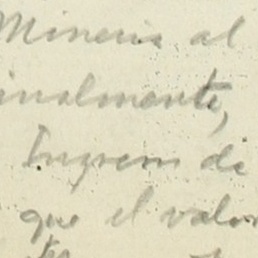 Mineria al
inalmente,
Ingreso de
que el valor